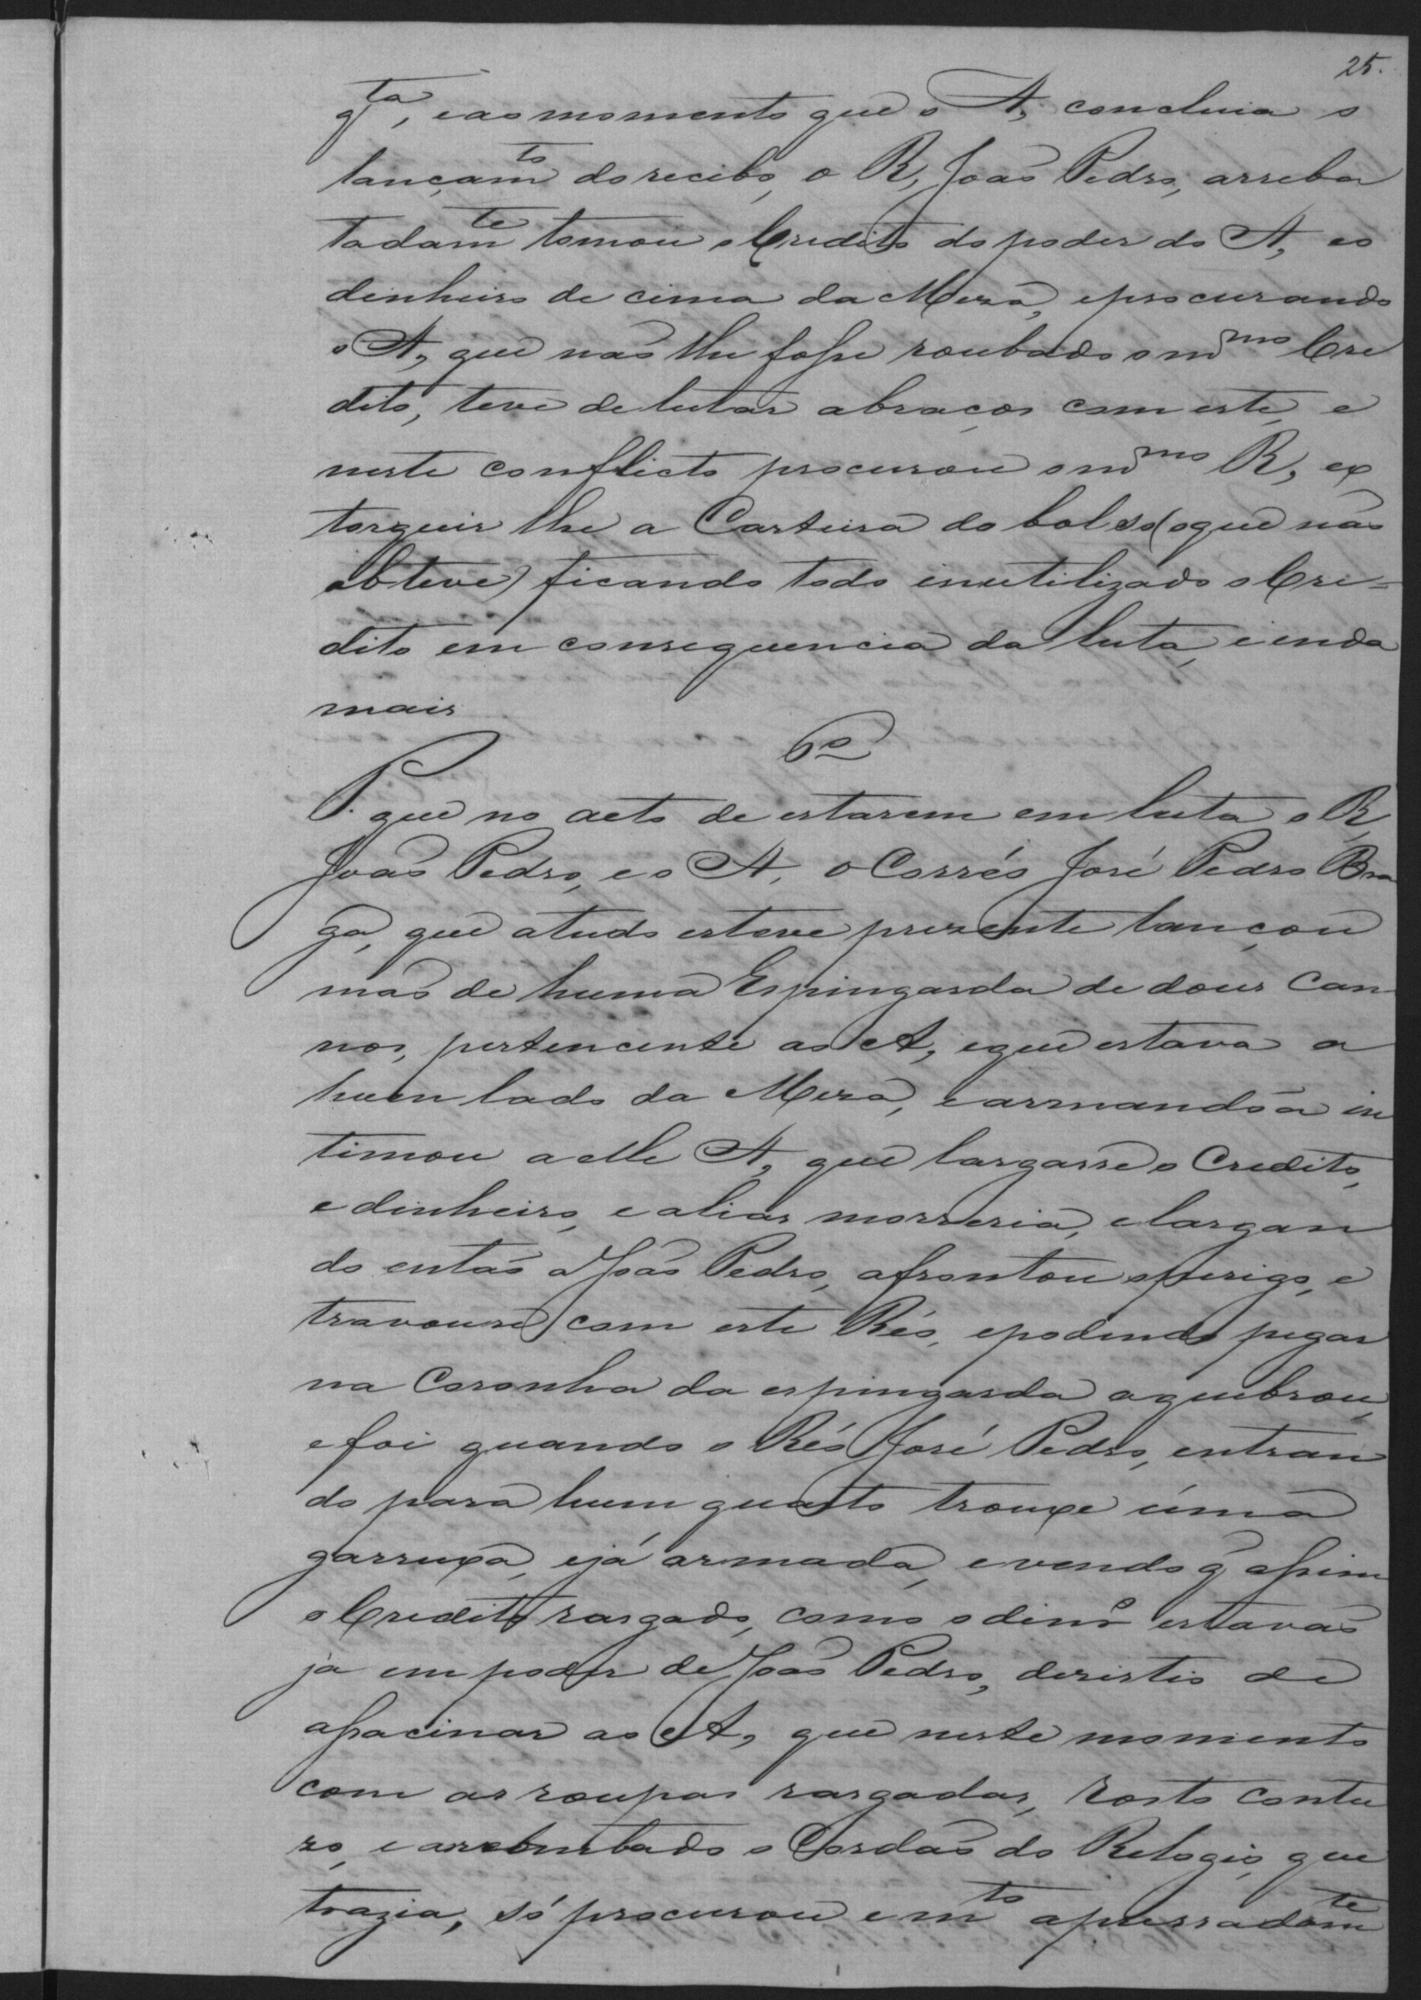 25.
q^ta, e ao momento que o A, concluia o
lançam^to do recibo, o R, João Pedro, arreba
tadam^te tomou o Credito do poder do A, e o
dinheiro de cima da Meza, e procurando
o A, que não lhe fosse roubado o m^mo Cre
dito, teve de lutar abraços com este, e
neste conflicto procurou o m^mo R, ex
torquir lhe a Carteira do bolso (o que não
obteve) ficando todo inutilizado o Cre=
dito em consequencia da luta, e inda
mais
6º
P. que no acto de estarem em luta o R
João Pedro, e o A, o Corréo José Pedro Bra
ga, que atudo esteve prezente lançou
mão de huma Espingarda de dous Can
nos, pertencente ao A, e que estava a
hum lado da Meza, e armando a in
timou a elle A, que largasse o Credito,
e dinheiro, e alias morreria, e largan
do então a João Pedro, afrontou o perigo, e
travouse com este Réo, e podendo pegar
na Coronha da espingarda a quebrou,
e foi quando o Réo José Pedro, entran
do para hum quarto trouxe úma
garruxa, e já armada, e vendo q̃ assim
o Credito rasgado, como o dinrº estavão
ja em poder de João Pedro, dezistio de
assacinar ao A, que neste momento
com as roupas rasgadas, rosto contu
zo, e arrebentado o Cordão do Relogio que
trazia, só procurou e m^to apressadam^te